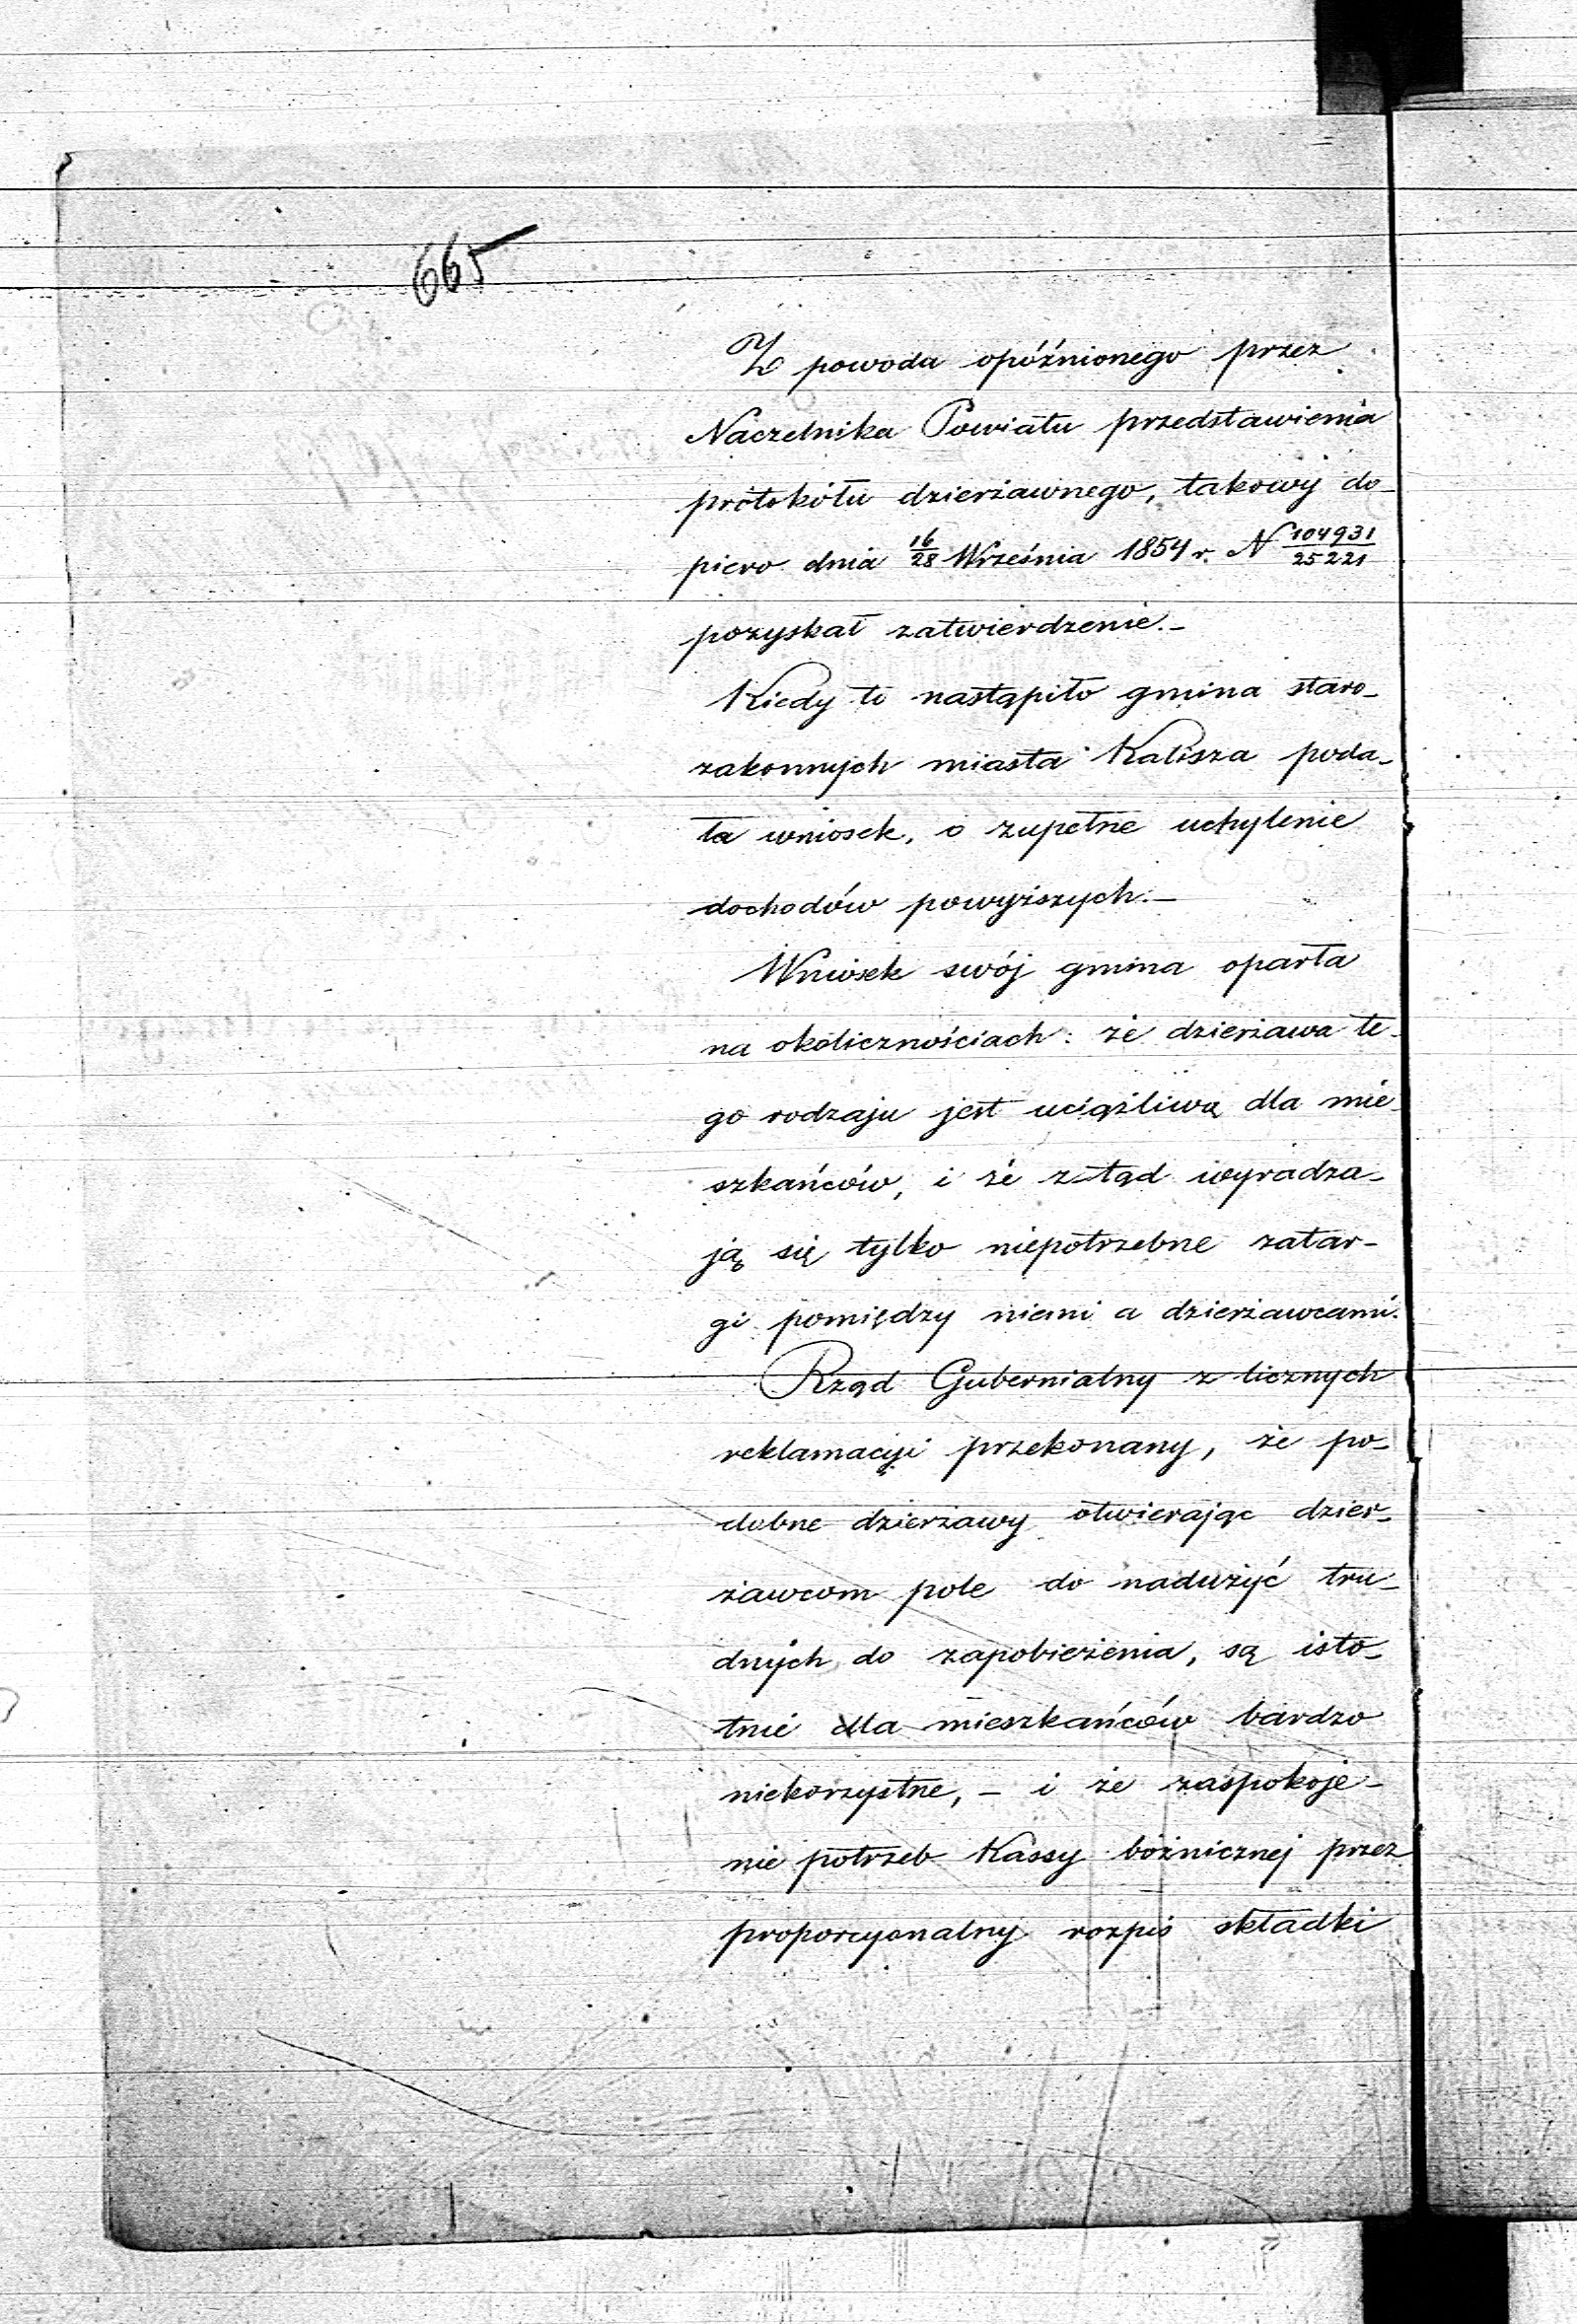 665
Z powodu opóźnionego przez
Naczelnika Powiatu przedstawienia
protokółu dzierżawnego, takowy do-
piero dnia 16/28 Września 1854 r. N 104931/25221
pozyskał zatwierdzenie.-
Kiedy to nastąpiło gmina staro-
zakonnych miasta Kalisza poda-
ła wniosek, o zupełne uchylenie
dochodów powyższych.-
Wniosek swój gmina oparła
na okolicznościach: że dzierżawa te-
go rodzaju jest uciążliwą dla mie-
szkańców, i że ztąd wyradza-
ją się tylko niepotrzebne zatar-
gi pomiędzy niemi a dzierżawcami.
Rząd Gubernialny z licznych
reklamacyi przekonany, że po-
dobne dzierżawy otwierając dzier-
żawcom pole do nadużyć tru-
dnych do zapobieżenia, są isto-
tnie dla mieszkańców bardzo
niekorzystne, - i że zaspokoje-
nie potrzeb Kassy bóżnicznej przez
proporcyonalny rozpis składki